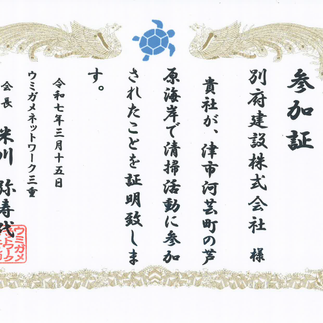 参加証
別府建設株式会社 様
貴社が、津市河芸町の芦
原海岸で清掃活動に参加
されたことを証明致しま
す。
令和七年三月十五日
ウミガメネットワーク三重
会長 米川 弥寿代